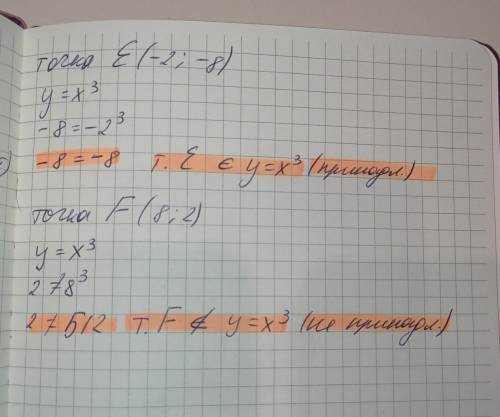 точка E (-2; -8)
y = x³
-8 = -2³
-8 = -8 т. E ∈ y = x³ (принадл.)
точка F (8; 2)
y = x³
2 ≠ 8³
2 ≠ 512 т. F ∉ y = x³ (не принадл.)